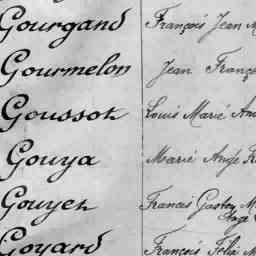 Gourgand François Jean
Gourmelon Jean Franço
Goussot Louis Marié
Gouya Marié Ange
Gouyet Francis Gaston M
Ange
Goyard François Félix M